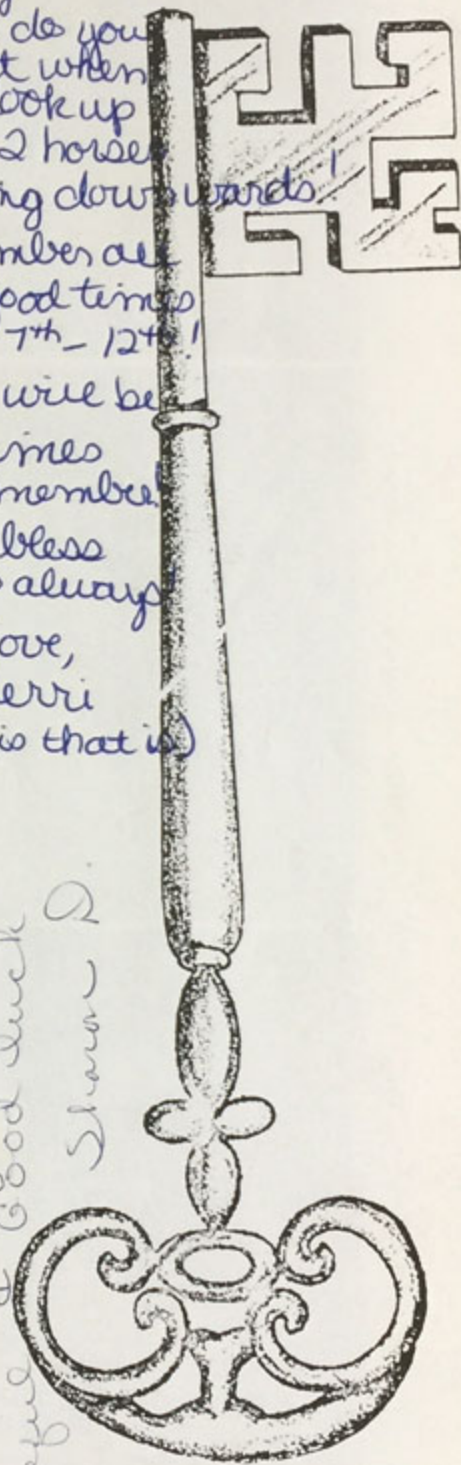 do you
when
look up
2 horses
ing downwards!
mber all
good times
7th - 12th!
will be
imes
member!
bless
always!
ove,
erri
is that is)
Good Luck
Sharon D.